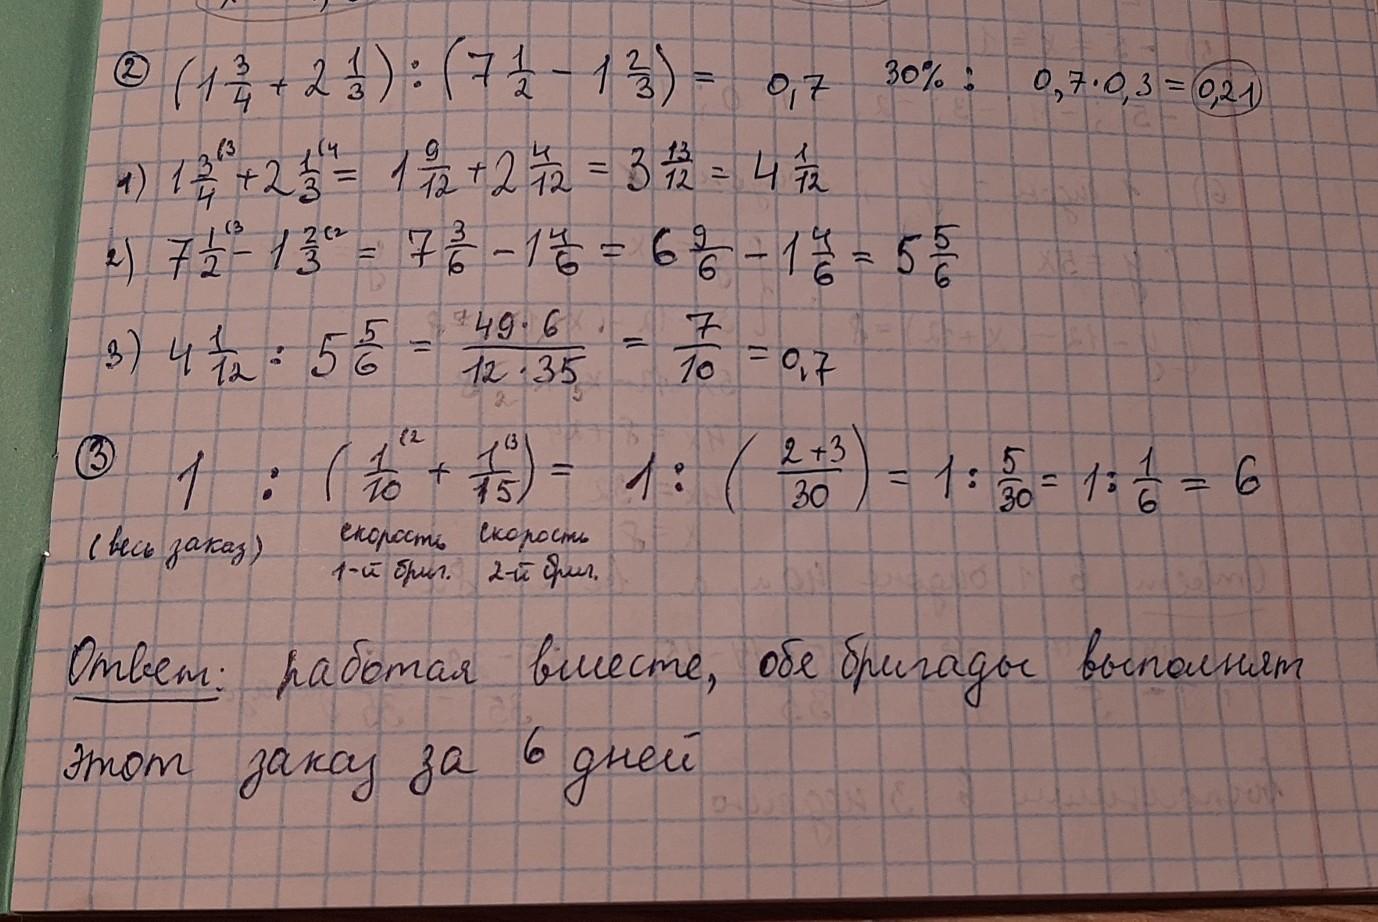 ② (1 3/4 + 2 1/3) : (7 1/2 − 1 2/3) = 0,7 30% : 0,7·0,3 = 0,21
1) 1 3/4 (3 + 2 1/3 (4 = 1 9/12 + 2 4/12 = 3 13/12 = 4 1/12
2) 7 1/2 (3 − 1 2/3 (2 = 7 3/6 − 1 4/6 = 6 9/6 − 1 4/6 = 5 5/6
3) 4 1/12 : 5 5/6 = 49·6/12·35 = 7/10 = 0,7
③ 1 : (1/10 (2 + 1/15 (3) = 1 : (2+3/30) = 1 : 5/30 = 1 : 1/6 = 6
(весь заказ) скорость скорость
1-й бриг. 2-й бриг.
Ответ: работая вместе, обе бригады выполнят
этот заказ за 6 дней